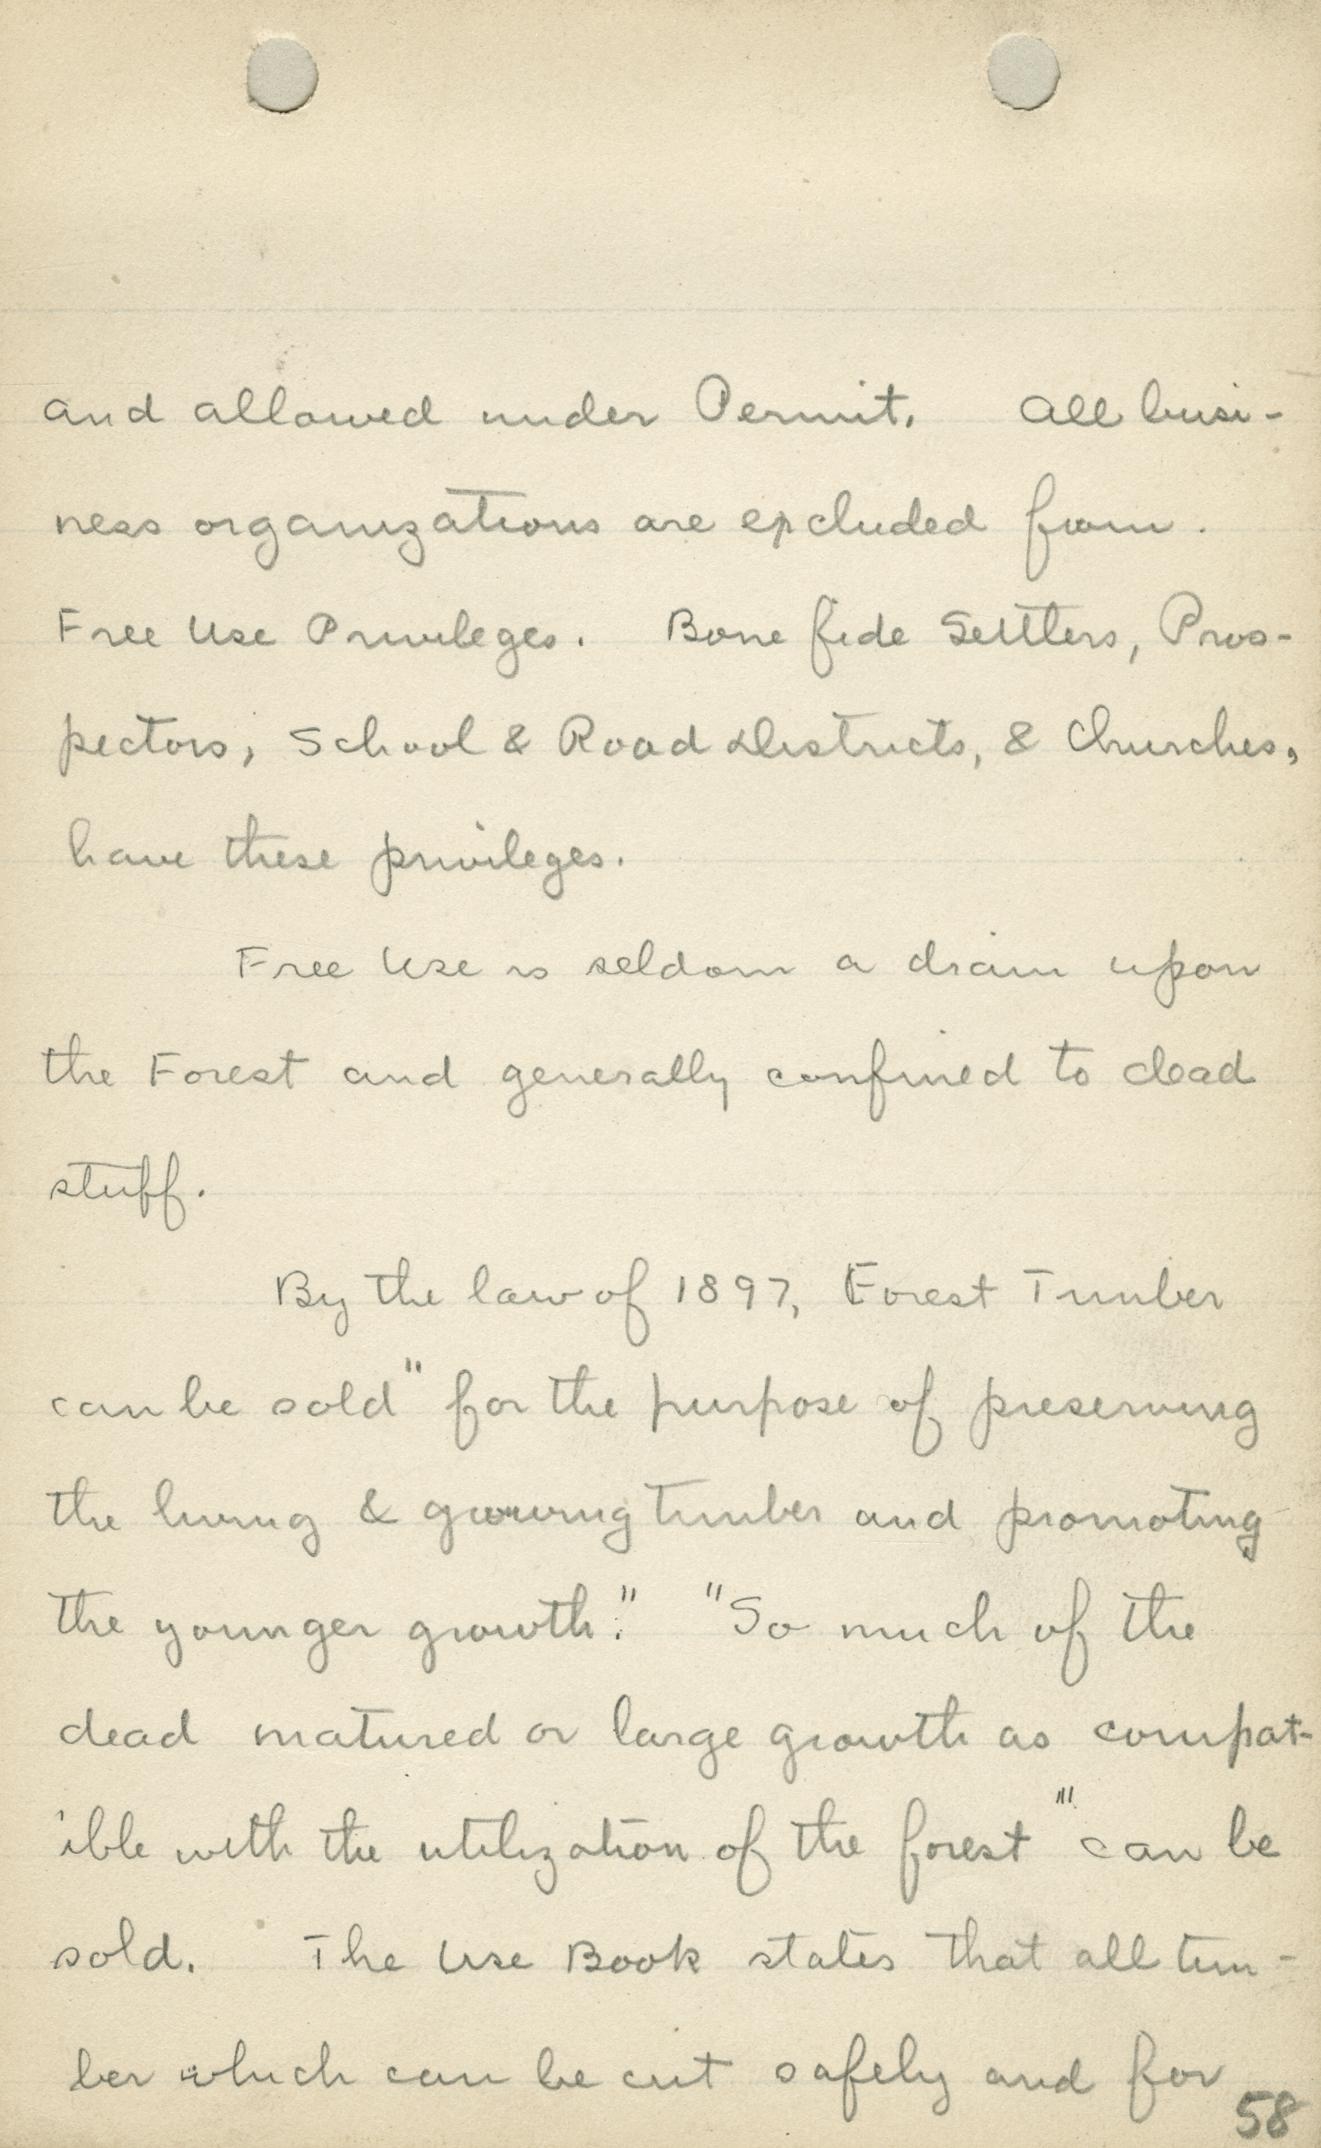 and allowed under Permit. All busi-
ness organizations are excluded from.
Free Use Privileges. Bone fide Settlers, Pros-
pectors, School & Road Districts, & Churches,
have these privileges.
Free Use is seldom a drain upon
the Forest and generally confined to dead
stuff.
By the law of 1897, Forest Timber
can be sold "for the purpose of preserving
the living & growing timber and promoting
the younger growth." "So much of the
dead matured or large growth as compat-
ible with the utilization of the forest"' can be
sold. The Use Book states that all tim-
ber which can be cut safely and for
58